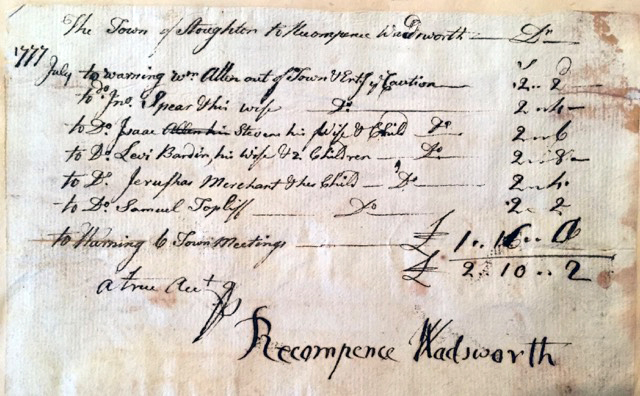 The Town of Stoughton to Recompence Wadsworth — Dr
1777 s d
July to warning Wm Allen out of Town & Entg ye Caution — 2..2
to do Jno. Spear & his wife Do 2..4
to Do Isaac Allen his Stevens his Wife & Child Do 2..6
to Do Levi Bardin, his Wife & 2 Children — Do 2..8
to Do Jerushas Merchant & hes Child — Do 2..4
to Do Samuel Topliff — Do 2..2
to Warning 6 Town Meetings — £ 1..16..0
£ 2..10..2
a true Acct
Recompence Wadsworth